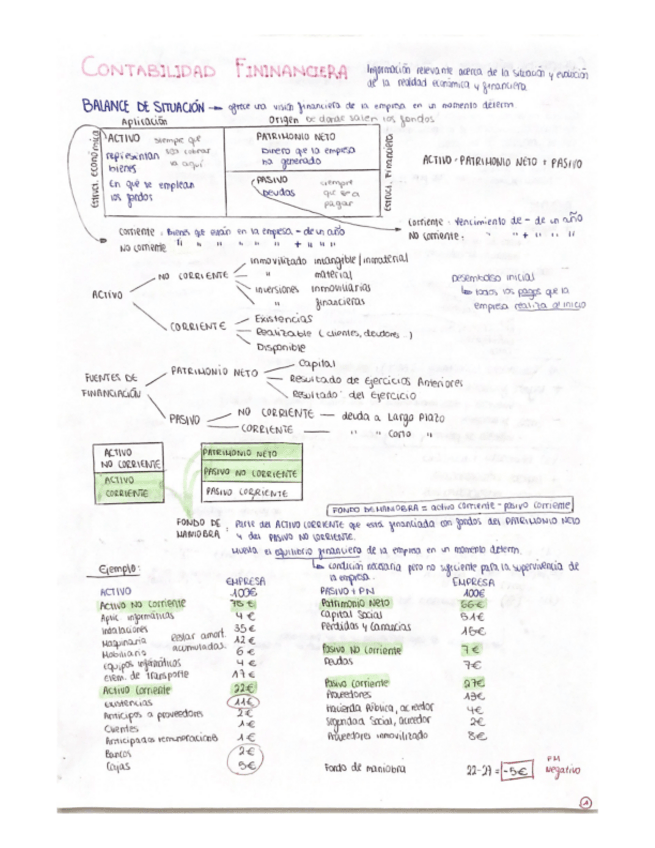 CONTABILIDAD FININANCIERA
Información relevante acerca de la situación y evolución
de la realidad económica y financiera.
BALANCE DE SITUACIÓN → ofrece una visión financiera de la empresa en un momento determ.
Aplicación
Origen de donde salen los fondos
Estruc. económica
ACTIVO siempre que
representan
bienes
va aquí
En qué se emplean
los fondos
PATRIMONIO NETO
Dinero que la empresa
ha generado
PASIVO
Deudas
siempre
que sea
pagar
Estruc. Financiera
ACTIVO = PATRIMONIO NETO + PASIVO
Corriente: Bienes que están en la empresa - de un año
No corriente " " " " " " + " " "
Corriente: vencimiento de - de un año
No corriente: " " + " " "
ACTIVO
NO CORRIENTE
Inmovilizado intangible/inmaterial
" material
Inversiones inmobiliarias
" financieras
CORRIENTE
Existencias
Realizable (clientes, deudores..)
Disponible
Desembolso inicial
todos los pagos que la
empresa realiza al inicio
FUENTES DE
FINANCIACIÓN
PATRIMONIO NETO
Capital
Resultado de Ejercicios Anteriores
Resultado del Ejercicio
PASIVO
NO CORRIENTE — deuda a Largo Plazo
CORRIENTE — " " Corto "
ACTIVO
NO CORRIENTE
ACTIVO
CORRIENTE
PATRIMONIO NETO
PASIVO NO CORRIENTE
PASIVO CORRIENTE
FONDO DE MANIOBRA = activo corriente - pasivo corriente
FONDO DE
MANIOBRA
: parte del ACTIVO CORRIENTE que está financiada con fondos del PATRIMONIO NETO
y del PASIVO NO CORRIENTE.
el equilibrio financiero de la empresa en un momento determ.
condición necesaria pero no suficiente para la supervivencia de
la empresa.
Ejemplo:
EMPRESA
ACTIVO 100€
Activo No corriente 78€
Aplic. informáticas 4€
Instalaciones 35€
Maquinaria 12€
Mobiliario 6€
restar amort.
acumuladas
Equipos informáticos 4€
Elem. de transporte 17€
Activo Corriente 22€
Existencias 11€
Anticipos a proveedores 2€
Clientes 1€
Anticipadas remuneraciones 1€
Bancos 2€
Cajas 5€
EMPRESA
PASIVO + PN 100€
Patrimonio Neto 66€
Capital Social 51€
Pérdidas y Ganancias 15€
Pasivo No Corriente 7€
Deudas 7€
Pasivo Corriente 27€
Proveedores 13€
Hacienda Pública, acreedor 4€
Seguridad Social, acreedor 2€
Proveedores inmovilizado 8€
Fondo de maniobra 22-27 = -5€
FM
Negativo
1